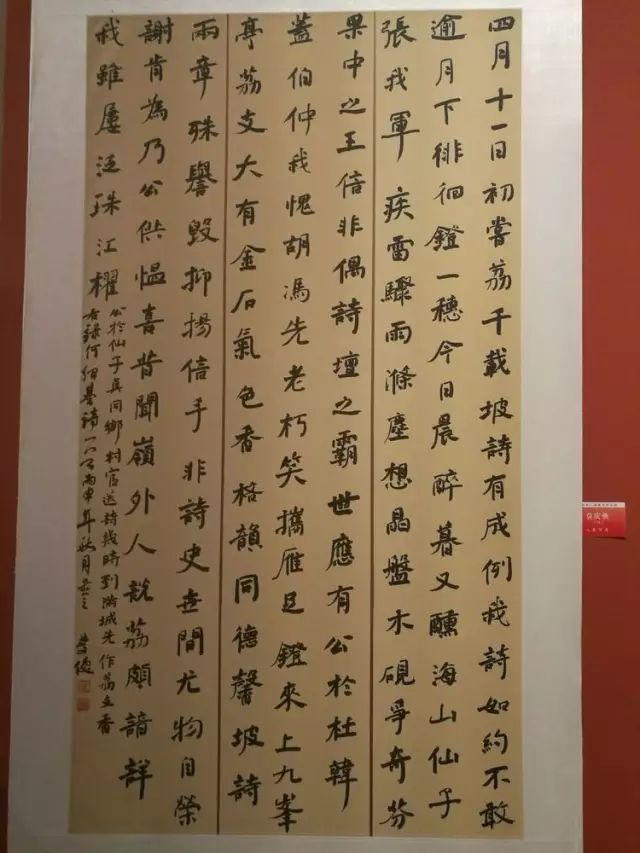 四月十一日初嘗荔千載坡詩有成例我詩如約不敢
逾月下徘徊鐙一穗今日晨醉暮又醺海山仙子
張我軍疾雷驟雨滌塵想晶盤木硯爭奇芬
果中之王信非偶詩壇之霸世應有公於杜韓
蓋伯仲我愧胡馮先老朽笑攜雁足鐙來上九峯
亭荔支大有金石氣色香格韻同德馨坡詩
兩章殊譽毀抑揚信手非詩史世間尤物自榮
謝肯為乃公供慍喜昔聞嶺外人說荔頗諳詳
我雖屢泛珠江櫂
公於仙子真同鄉村官送詩幾時到滿城先作荔支香
右錄何紹基詩一首丙申年秋月